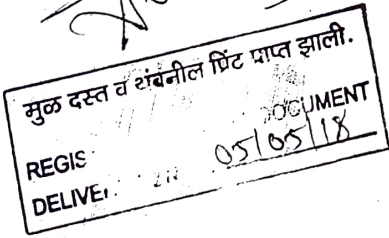 मुळ दस्त व थंबनील प्रिंट प्राप्त झाली.
REGIS
DOCUMENT
DELIVE
05/05/18